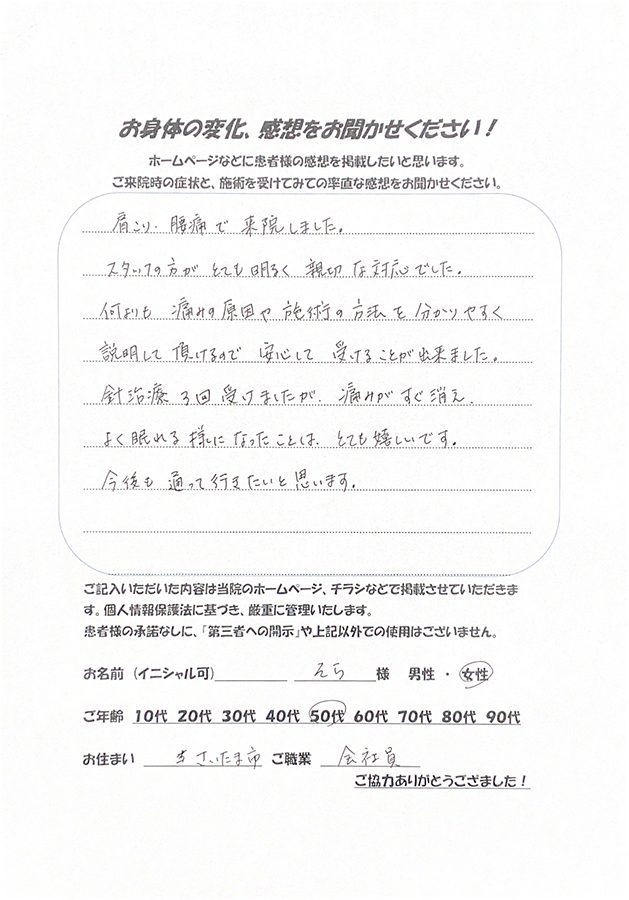 お身体の変化、感想をお聞かせください！
ホームページなどに患者様の感想を掲載したいと思います。
ご来院時の症状と、施術を受けてみての率直な感想をお聞かせください。
肩こり、腰痛で来院しました。
スタッフの方がとても明るく親切な対応でした。
何よりも痛みの原因や施術の方法を分かりやすく
説明して頂けるので安心して受けることが出来ました。
針治療3回受けましたが、痛みがすぐ消え、
よく眠れる様になったことは、とても嬉しいです。
今後も通って行きたいと思います。
ご記入いただいた内容は当院のホームページ、チラシなどで掲載させていただきま
す。個人情報保護法に基づき、厳重に管理いたします。
患者様の承諾なしに、「第三者への開示」や上記以外での使用はございません。
お名前（イニシャル可） 様 男性・女性
ご年齢 10代 20代 30代 40代 50代 60代 70代 80代 90代
お住まい さいたま市 ご職業 会社員
ご協力ありがとうござました！